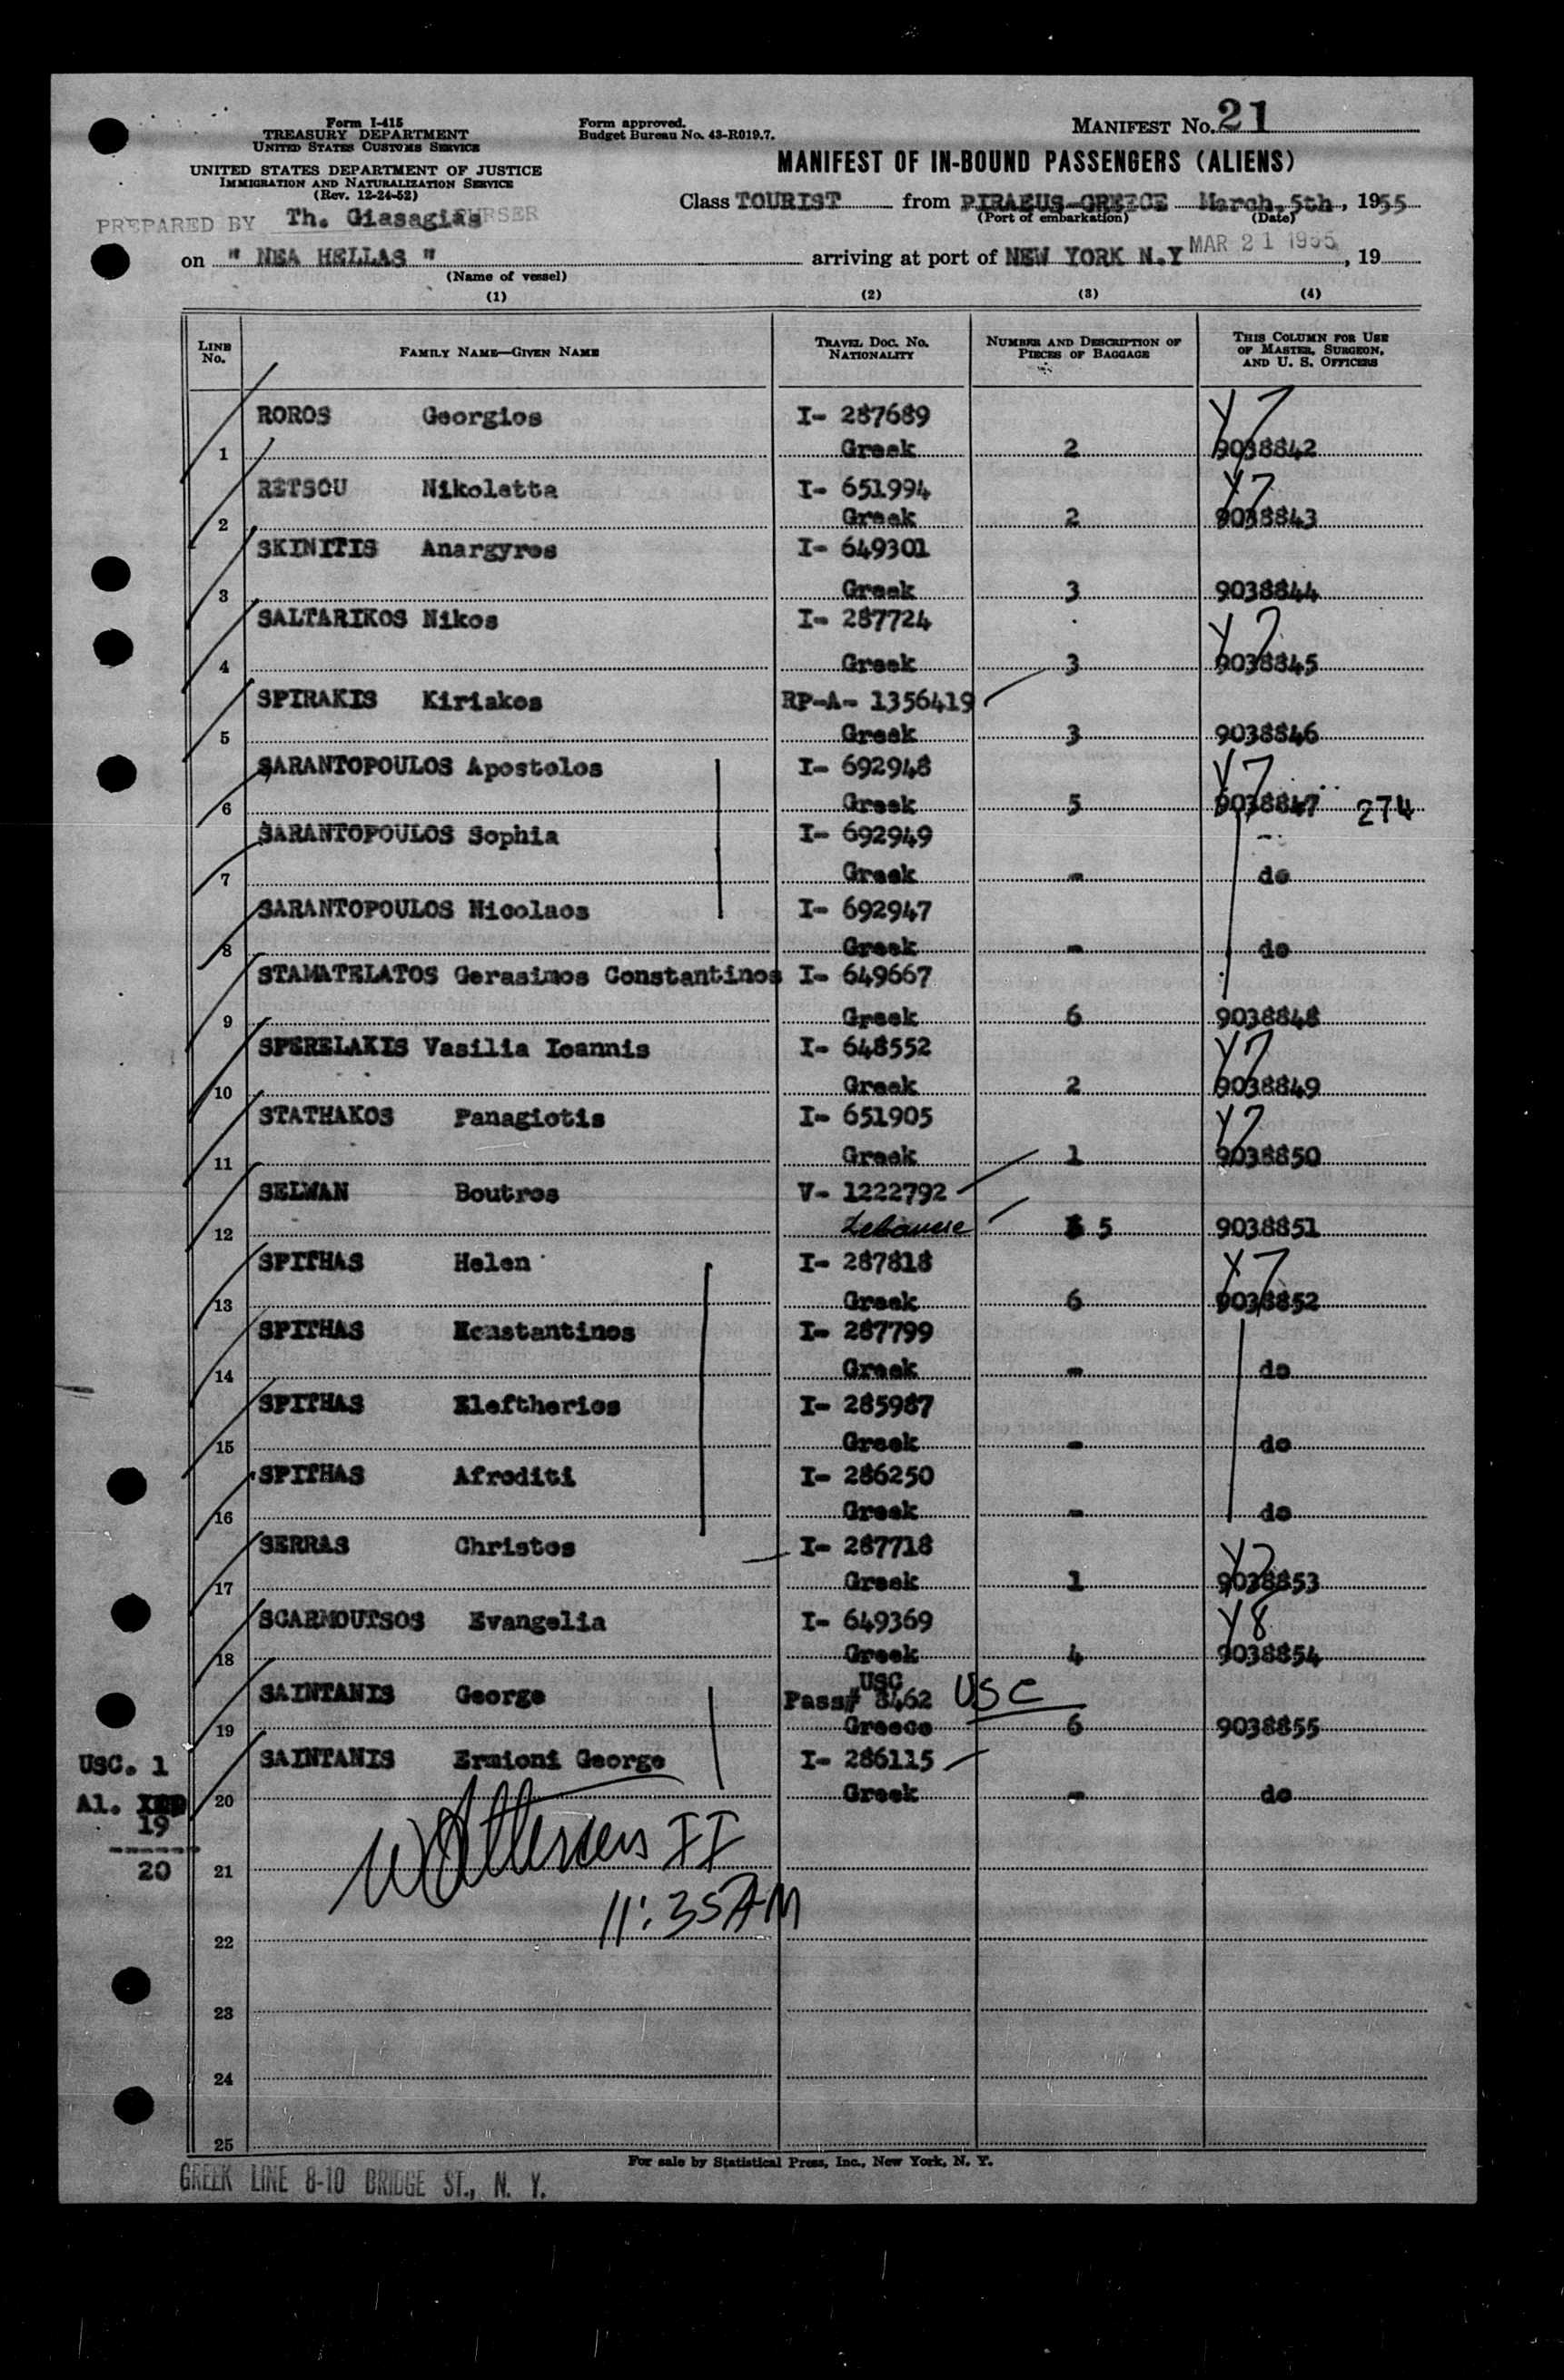 Form I-415
TREASURY DEPARTMENT
UNITED STATES CUSTOMS SERVICE
UNITED STATES DEPARTMENT OF JUSTICE
IMMIGRATION AND NATURALIZATION SERVICE
(Rev. 12-24-52)
Form approved.
Budget Bureau No. 43-R019.7.
MANIFEST No. 21
MANIFEST OF IN-BOUND PASSENGERS (ALIENS)
PREPARED BY Th. Giasagias PURSER
Class TOURIST from PIRAEUS-GREECE March, 5th, 1955
(Port of embarkation) (Date)
on " NEA HELLAS " arriving at port of NEW YORK N.Y MAR 21 1955, 19
(Name of vessel)
(1) (2) (3) (4)
LINE No. FAMILY NAME—GIVEN NAME TRAVEL DOC. NO. NATIONALITY NUMBER AND DESCRIPTION OF PIECES OF BAGGAGE THIS COLUMN FOR USE OF MASTER, SURGEON, AND U. S. OFFICERS
ROROS Georgios I- 287689 Y7
1 Greek 2 9038842
RETSOU Nikoletta I- 651994 Y7
2 Greek 2 9038843
SKINITIS Anargyros I- 649301
3 Greek 3 9038844
SALTARIKOS Nikos I- 287724 Y7
4 Greek 3 9038845
SPIRAKIS Kiriakos RP-A- 1356419
5 Greek 3 9038846
SARANTOPOULOS Apostolos I- 692948 Y7
6 Greek 5 9038847 274
SARANTOPOULOS Sophia I- 692949 -
7 Greek - do
SARANTOPOULOS Nicolaos I- 692947
8 Greek - do
STAMATELATOS Gerasimos Constantinos I- 649667
9 Greek 6 9038848
SPERELAKIS Vasilia Ioannis I- 648552 Y7
10 Greek 2 9038849
STATHAKOS Panagiotis I- 651905 Y7
11 Greek 1 9038850
SELWAN Boutros V- 1222792
12 Lebanese 5 9038851
SPITHAS Helen I- 287818 Y7
13 Greek 6 9038852
SPITHAS Konstantinos I- 287799
14 Greek - do
SPITHAS Eleftherios I- 285987
15 Greek - do
SPITHAS Afroditi I- 286250
16 Greek - do
SERRAS Christos I- 287718 Y7
17 Greek 1 9038853
SCARMOUTSOS Evangelia I- 649369 Y8
18 Greek 4 9038854
USC
SAINTANIS George Pass# 8462 USC
19 Greece 6 9038855
USC. 1 SAINTANIS Ermioni George I- 286115
Al. 20 Greek - do
19
20 21
II
11:35 AM
22
23
24
25
For sale by Statistical Press, Inc., New York, N. Y.
GREEK LINE 8-10 BRIDGE ST., N. Y.